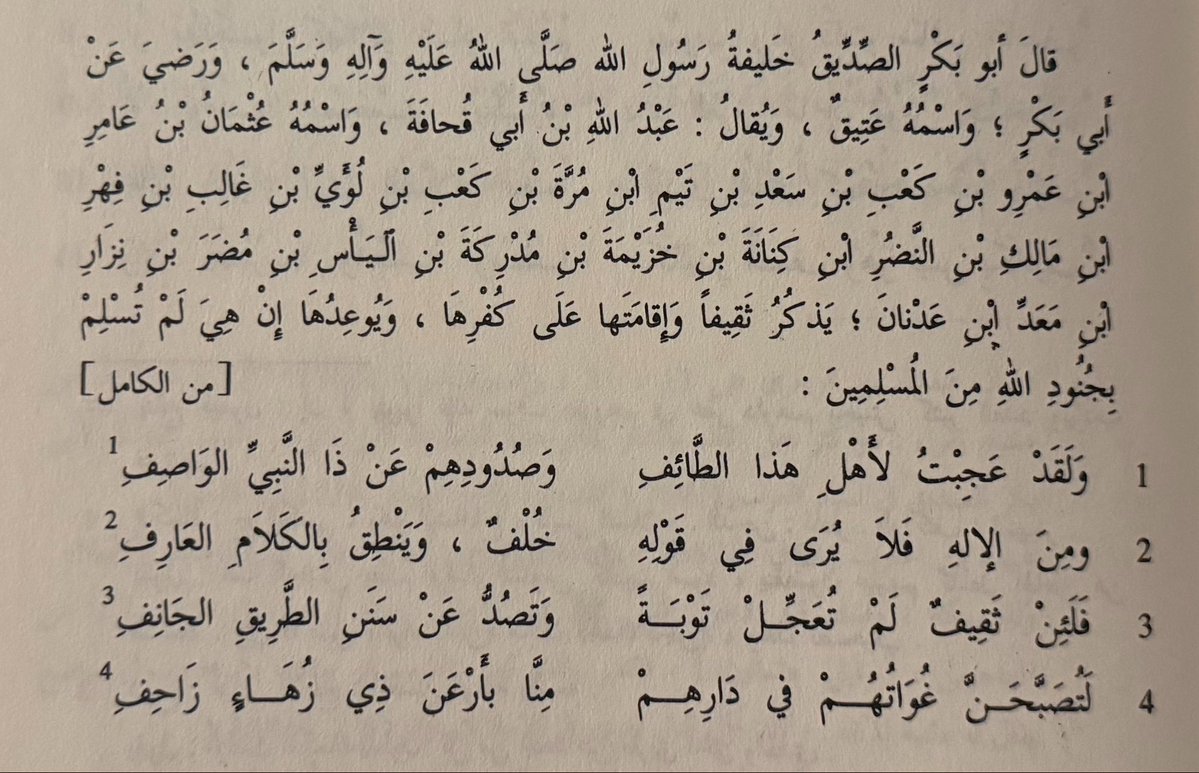 قالَ أبو بَكْرٍ الصِّدِّيقُ خَليفةُ رَسُولِ الله صَلَّى اللهُ عَلَيْهِ وَآلِهِ وَسَلَّمَ ، وَرَضيَ عَنْ
أَبي بَكْرٍ ؛ وَاسْمُهُ عَتِيقٌ ، وَيُقالُ : عَبْدُ اللهِ بْنُ أَبي قُحافَةَ ، وَاسْمُهُ عُثْمَانُ بْنُ عَامِرِ
ابْنِ عَمْرِو بْنِ كَعْبِ بْنِ سَعْدِ بْنِ تَيْمِ ابْنِ مُرَّةَ بْنِ كَعْبِ بْنِ لُؤَيِّ بْنِ غَالِبِ بْنِ فِهْرِ
ابْنِ مَالِكِ بْنِ النَّضُرِ ابْنِ كِنَانَةَ بْنِ خُزَيْمَةَ بْنِ مُدْرِكَةَ بْنِ ٱلْيَأْسِ بْنِ مُضَرَ بْنِ نِزَارِ
ابْنِ مَعَدِّ ابْنِ عَدْنانَ ؛ يَذكُرُ ثَقِيفاً وَإِقامَتَها عَلَى كُفْرِهَا ، وَيُوعِدُهَا إِنْ هِيَ لَمْ تُسْلِمْ
بِجُنُودِ اللهِ مِنَ الْمُسْلِمِينَ : [من الكامل]
1 وَلَقَدْ عَجِبْتُ لأَهْلِ هَذا الطَّائِفِ وَصُدُودِهِمْ عَنْ ذَا النَّبِيِّ الوَاصِفِ1
2 ومِنَ الإلهِ فَلاَ يُرَى فِي قَوْلِهِ خُلْفٌ ، وَيَنْطِقُ بِالكَلاَمِ العَارِفِ2
3 فَلَئِنْ ثَقِيفٌ لَمْ تُعَجِّلْ تَوْبَةً وَتَصُدُّ عَنْ سَنَنِ الطَّرِيقِ الجَانِفِ3
4 لَتُصَبَّحَنَّ غُوَاتُهُمْ في دَارِهِمْ مِنَّا بأَرْعَنَ ذِي زُهَاءٍ زَاحِفِ4